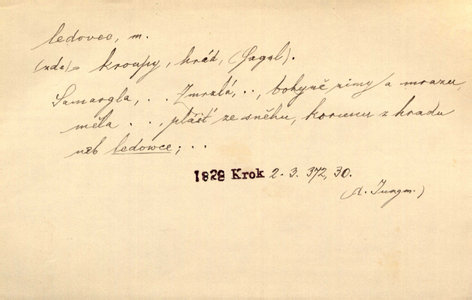 ledovec, m.
(zda) = kroupy, hrád, (Hagel).
Samargla, . . Zmrzlá, . ., bohyně zimy a mrazu,
měla . . ., plášť ze sněhu, korunu z hradu
neb ledowce; . .
1828 Krok 2. 3. 372, 30.
(A. Jungm.)